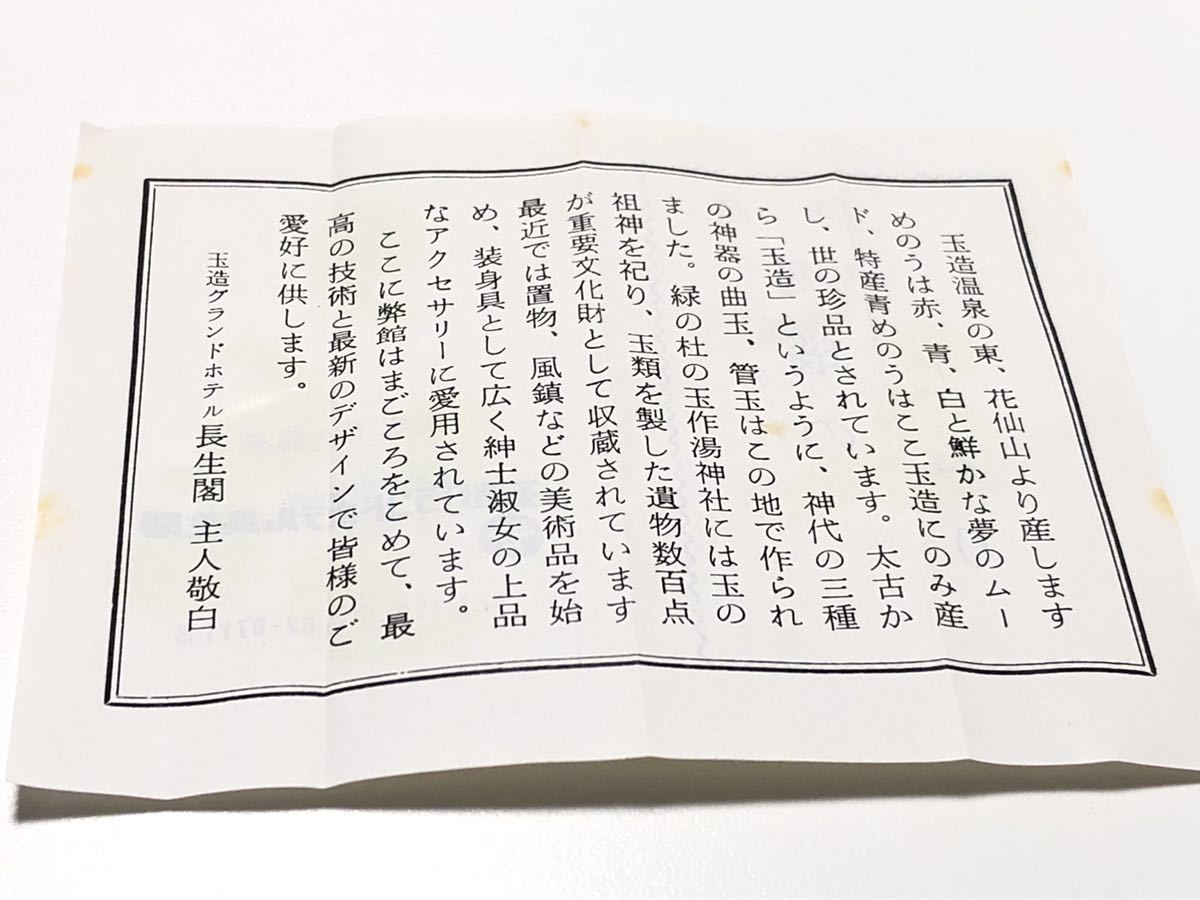 玉造温泉の東、花仙山より産します
めのうは赤、青、白と鮮かな夢のムー
ド、特産青めのうはここ玉造にのみ産
し、世の珍品とされています。太古か
ら「玉造」というように、神代の三種
の神器の曲玉、管玉はこの地で作られ
ました。緑の杜の玉作湯神社には玉の
祖神を祀り、玉類を製した遺物数百点
が重要文化財として収蔵されています
最近では置物、風鎮などの美術品を始
め、装身具として広く紳士淑女の上品
なアクセサリーに愛用されています。
ここに弊館はまごころをこめて、最
高の技術と最新のデザインで皆様のご
愛好に供します。
玉造グランドホテル長生閣 主人敬白